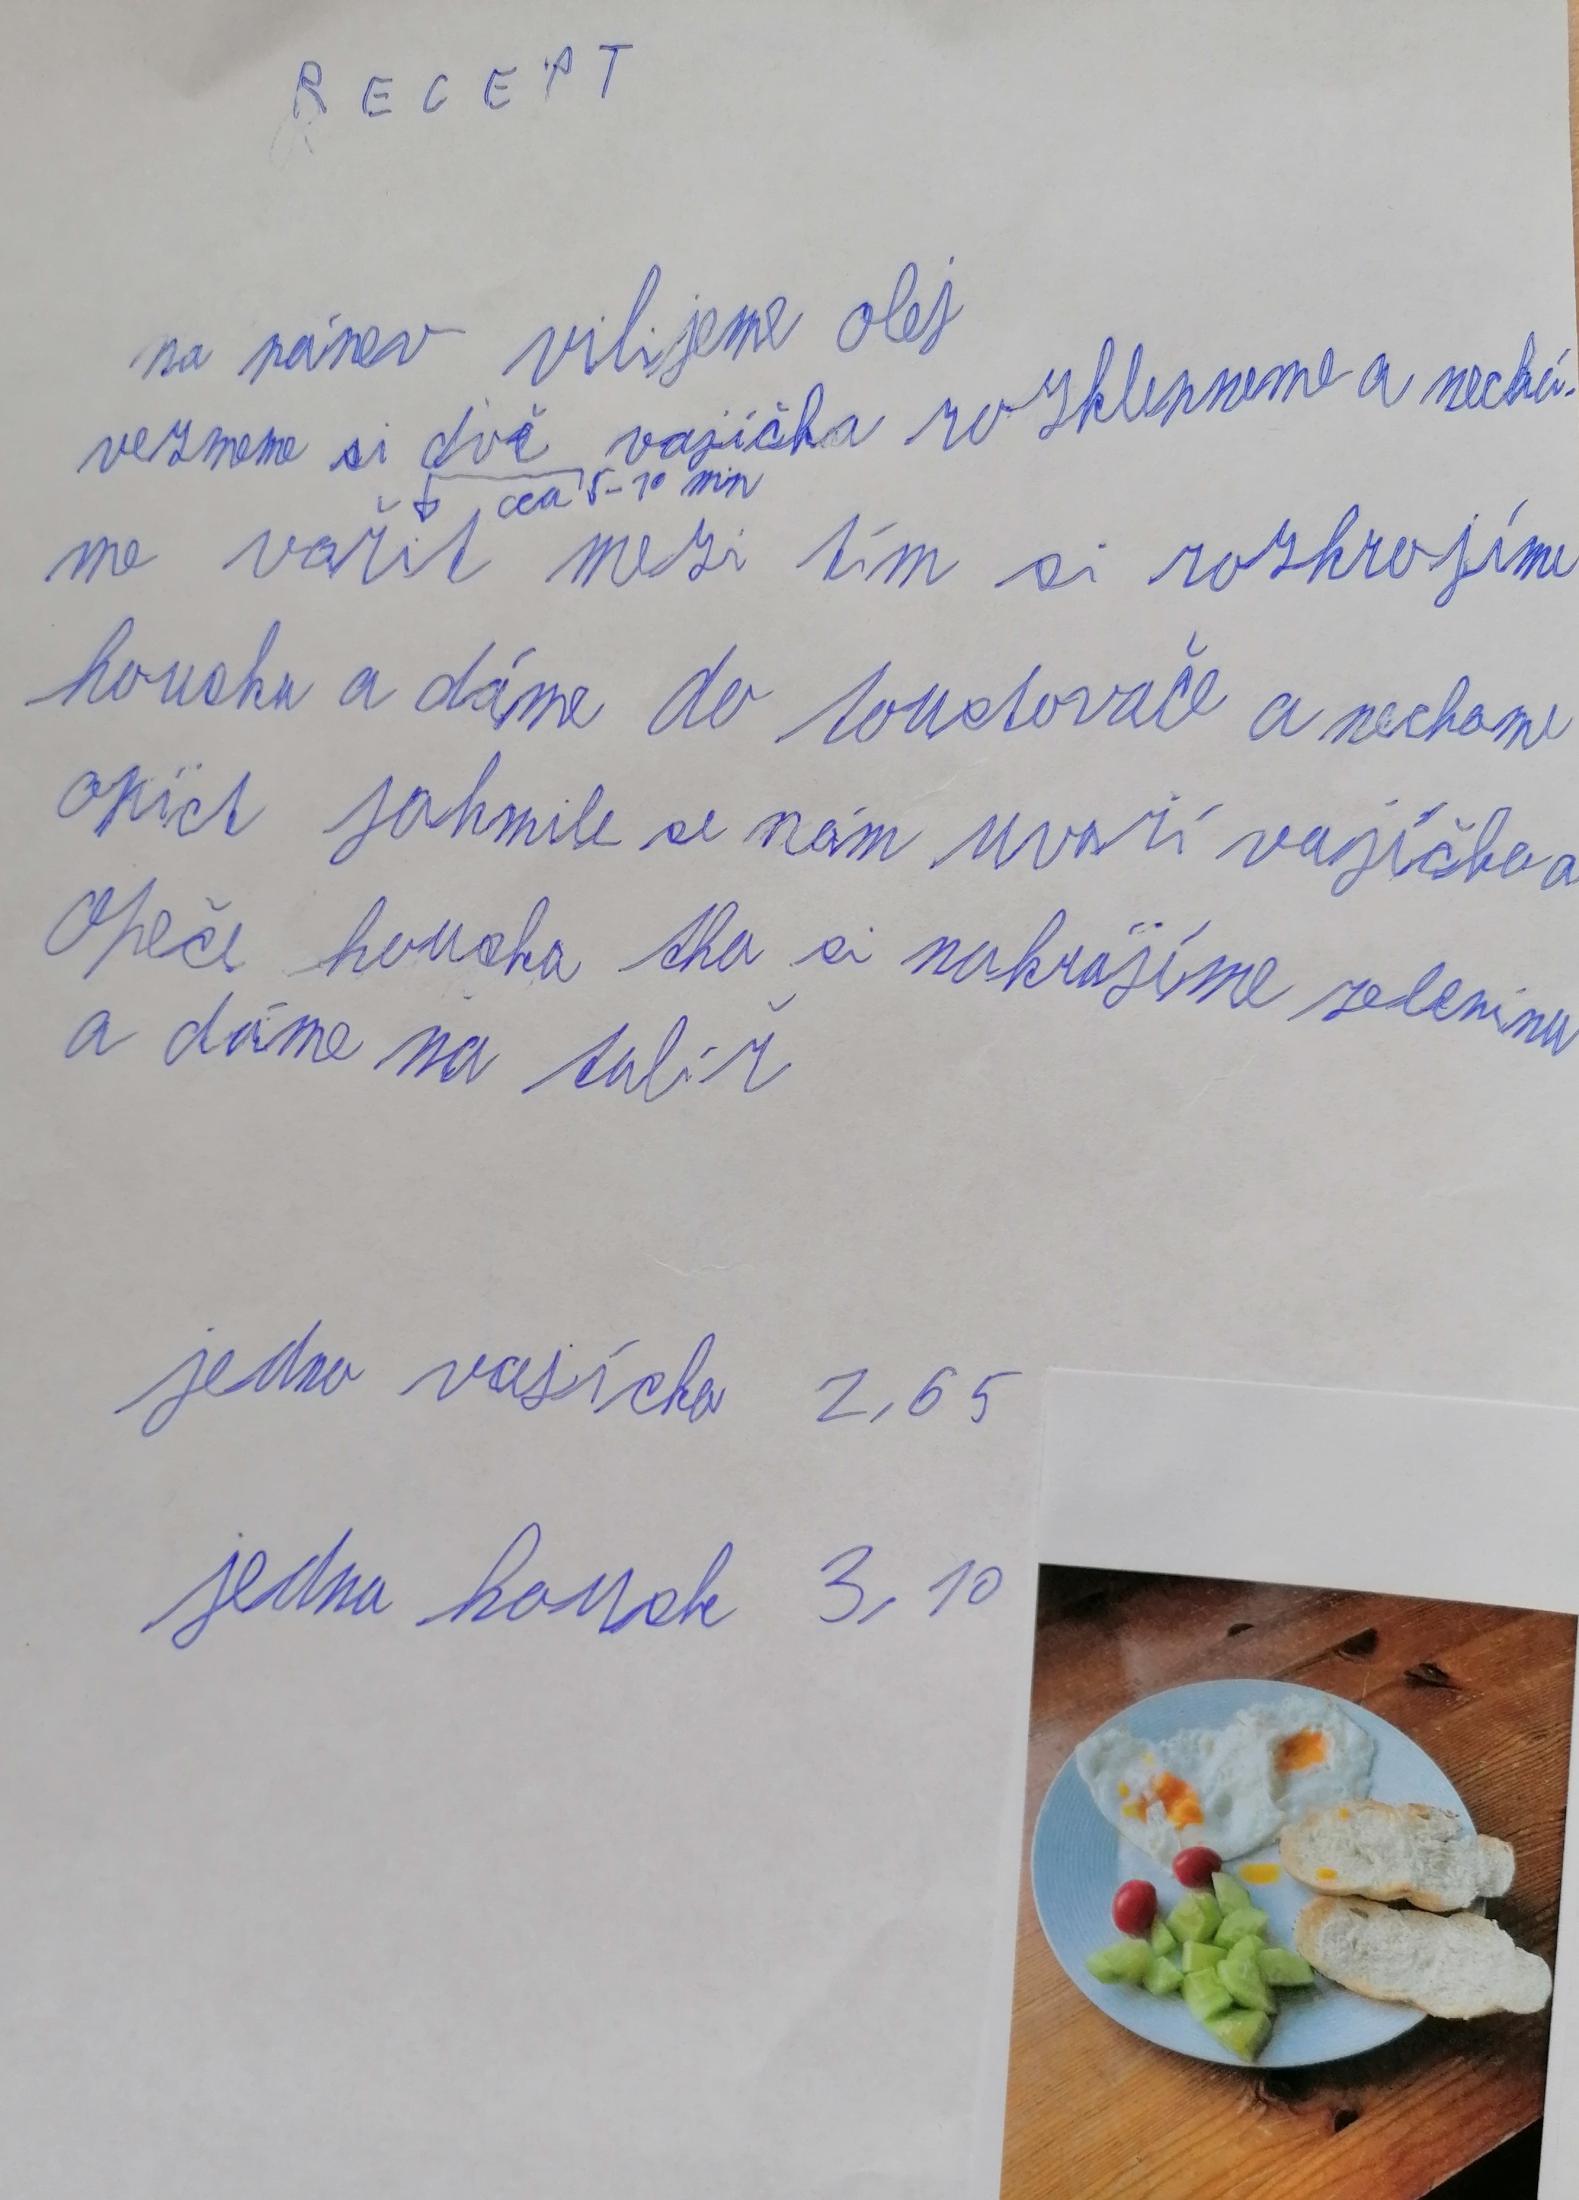 RECEPT
na pánev vilijeme olej
vezmeme si dvě vajíčka rozklepneme a nechá-
cca 5-10 min
me vařit mezi tím si rozkrojíme
housku a dáme do toustovače a nechame
opíct jakmile se nám uvaří vajíčka a
opeče houska tka si nakrájíme zeleninu
a dáme na talíř
jedno vajícka 2,65
jedna housk 3,10